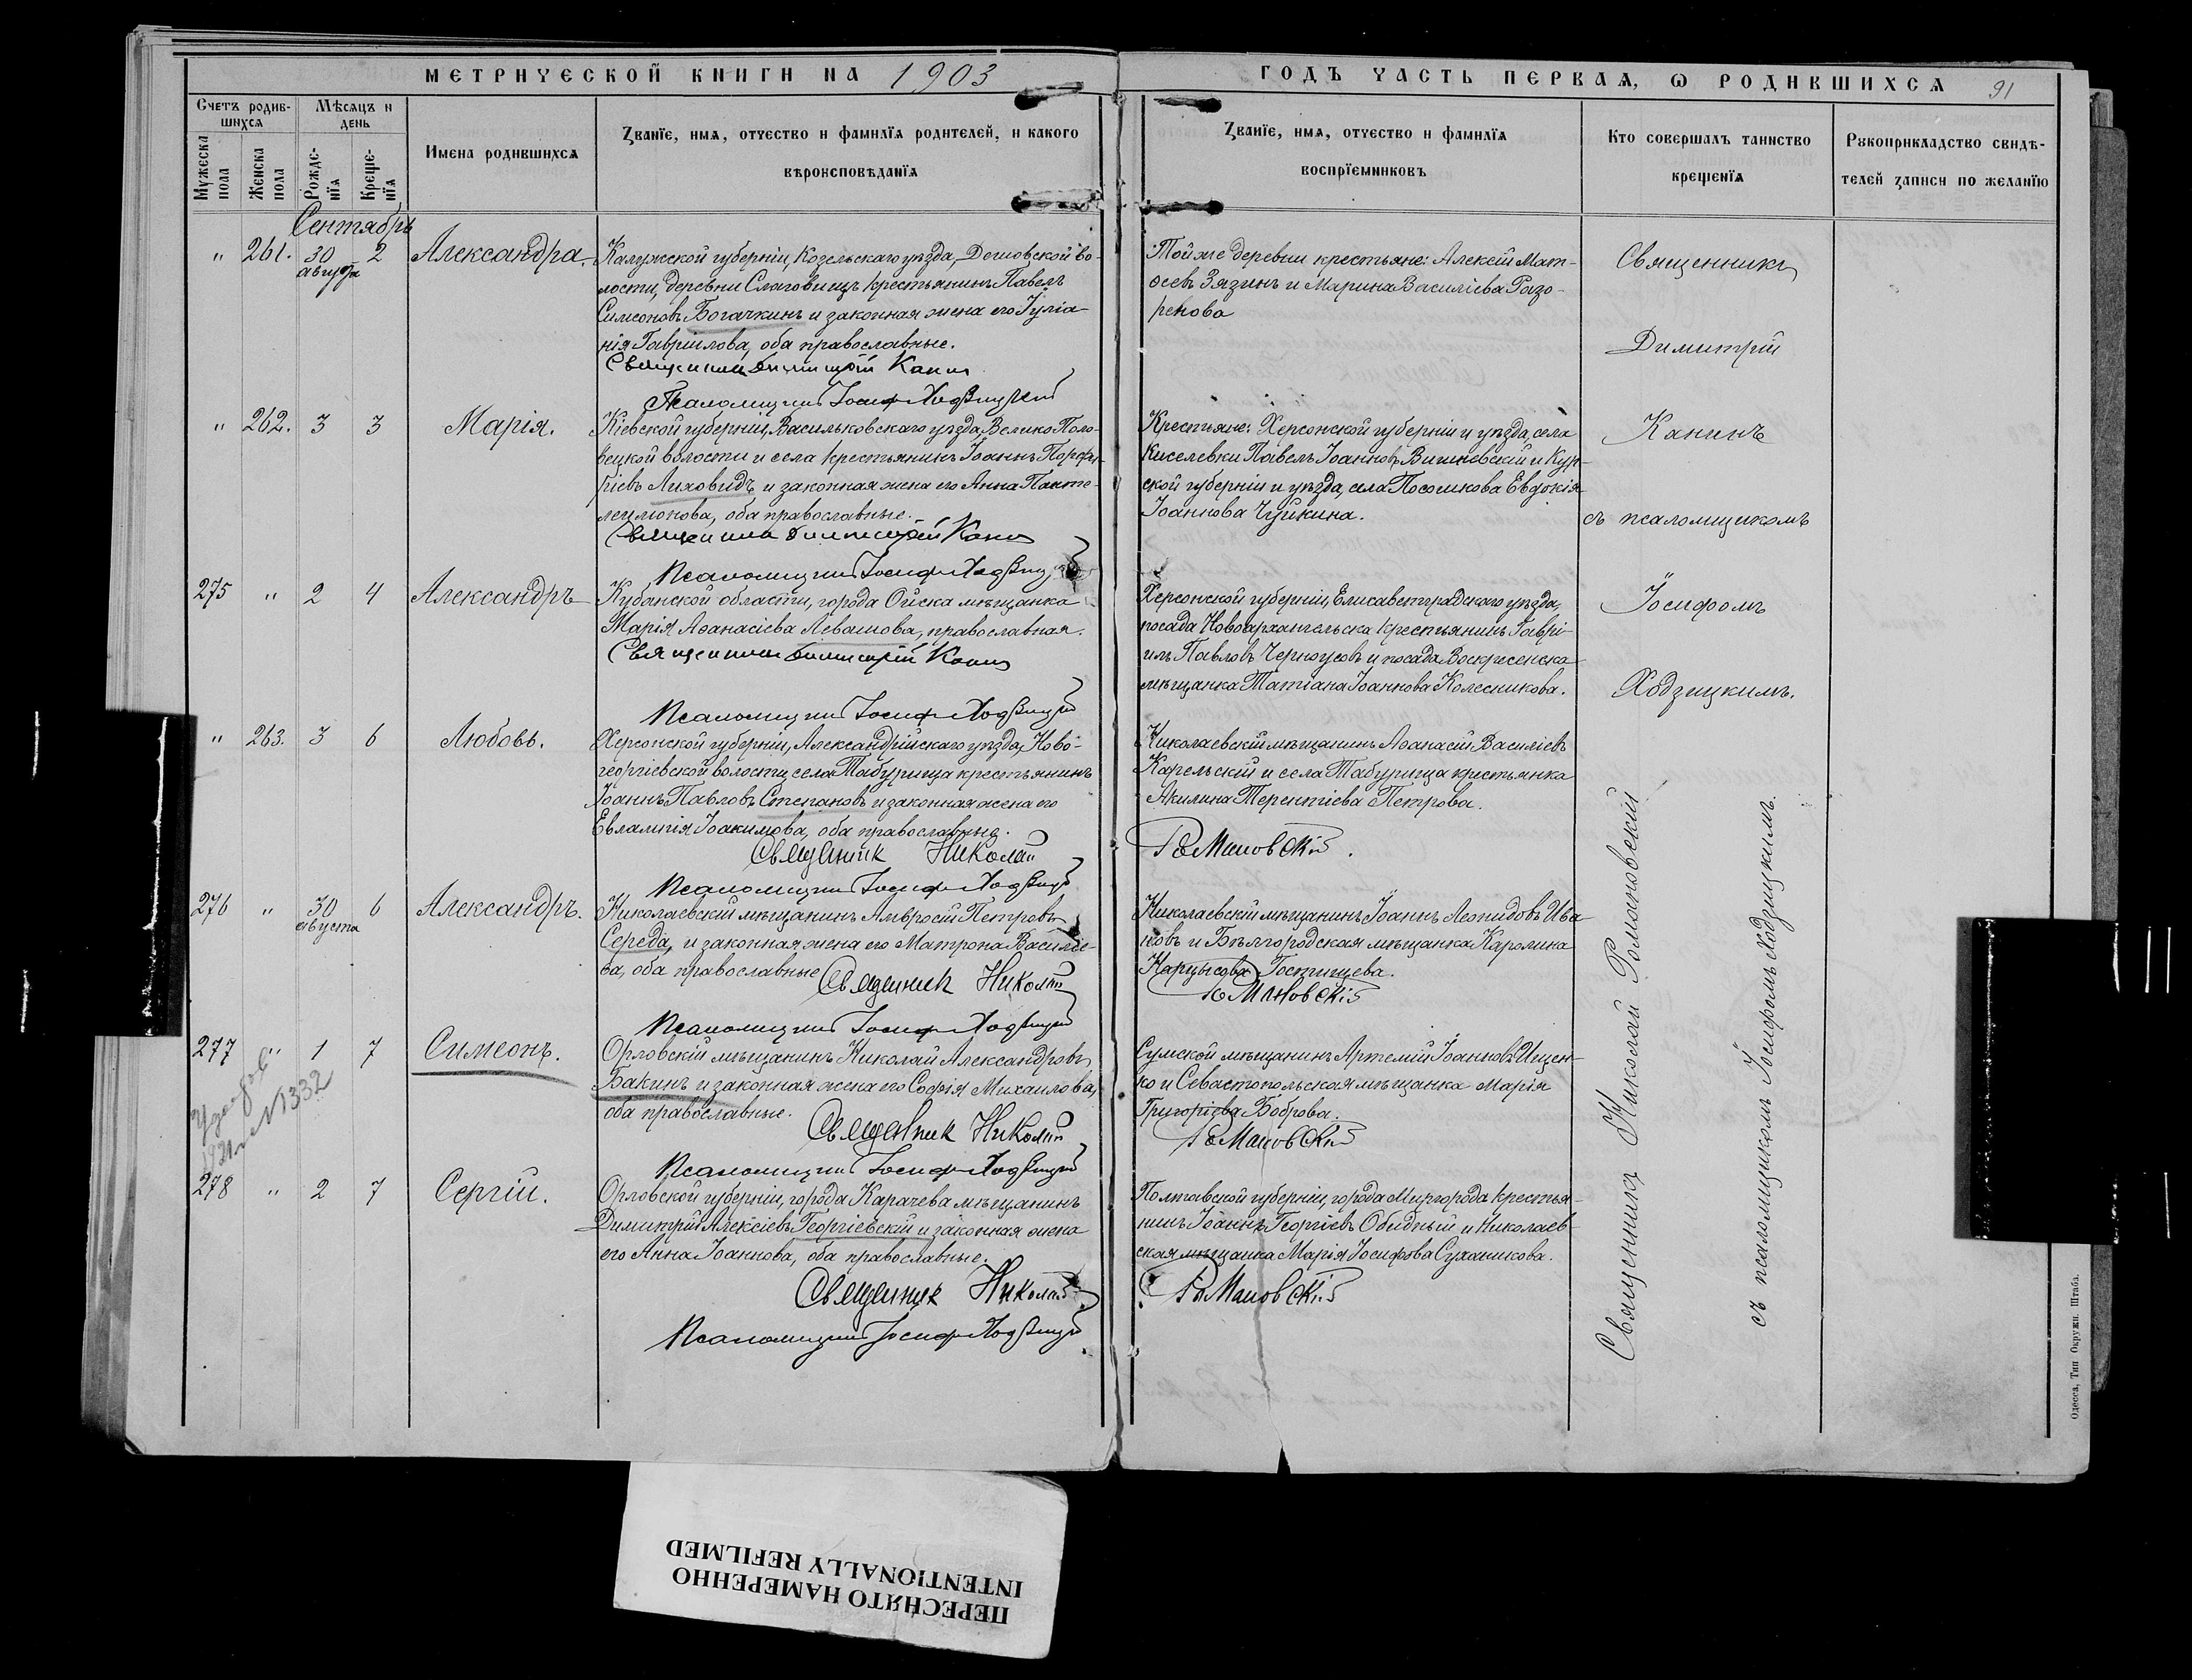 МЕТРИЧЕСКОЙ КНИГИ НА 1903
ГОДЪ ЧАСТЬ ПЕРВАЯ, Ѡ РОДИВШИХСѦ 91
Счетъ родив-
шихсѧ
Мѣсѧцъ и
день
Мужеска
пола
Женска
пола
Рожде-
нїѧ
Креще-
нїѧ
Имена родившихсѧ
Званїе, имѧ, отчество и фамилїѧ родителей, и какого
вѣроисповѣданїѧ
Званїе, имѧ, отчество и фамилїѧ
воспрїемниковъ
Кто совершалъ таинство
крещенїѧ
Рукоприкладство свидѣ-
телей записи по желанїю
Сентябрь
" 261. 30 августа 2 Александра.
Калужской губерніи, Козельскаго уѣзда, Дешовской во-
лости, деревни Слаговищъ крестьянинъ Павелъ
Симеоновъ Богачкинъ и законная жена его Іуліа-
нія Гавріилова, оба православные.
Священникъ Димитрій Канинъ
Псаломщикъ Іосифъ Ходзицкій
Той же деревни крестьяне: Алексій Мат-
ѳеевъ Зязинъ и Марина Василіева Разо-
ренова
" 262. 3 3 Марія.
Кіевской губерніи, Васильковскаго уѣзда, Велико Поло-
вецкой волости и села крестьянинъ Іоаннъ Порфи-
ріевъ Лиховидъ и законная жена его Анна Панте-
леимонова, оба православные.
Священникъ Димитрій Канинъ
Псаломщикъ Іосифъ Ходзицкій
Крестьяне: Херсонской губерніи и уѣзда, села
Киселевки Павелъ Іоанновъ Вишневскій и Кур-
ской губерніи и уѣзда, села Посошкова Евдокія
Іоаннова Чуйкина.
275 " 2 4 Александръ
Кубанской области, города Ейска мѣщанка
Марія Аѳанасіева Левашова, православная.
Священникъ Димитрій Канинъ
Псаломщикъ Іосифъ Ходзицкій
Херсонской губерніи, Елисаветградскаго уѣзда,
посада Новоархангельска крестьянинъ Гаврі-
илъ Павловъ Черноусовъ и посада Воскресенска
мѣщанка Татіана Іоаннова Колесникова.
Священникъ
Димитрій
Канинъ
съ псаломщикомъ
Іосифомъ
Ходзицкимъ.
" 263. 3 6 Любовь.
Херсонской губерніи, Александрійскаго уѣзда, Ново-
георгіевской волости, села Табурища крестьянинъ
Іоаннъ Павловъ Степановъ и законная жена его
Евлампія Іоакимова, оба православные.
Священникъ Николай
Псаломщикъ Іосифъ Ходзицкій
Николаевскій мѣщанинъ Аѳанасій Василіевъ
Карельскій и села Табурища крестьянка
Акилина Терентіева Петрова.
Романовскій.
276 " 30 августа 6 Александръ.
Николаевскій мѣщанинъ Амвросій Петровъ
Середа, и законная жена его Матрона Василіе-
ва, оба православные Священникъ Николай
Псаломщикъ Іосифъ Ходзицкій
Николаевскій мѣщанинъ Іоаннъ Леонидовъ Ива
новъ и Бѣлгородская мѣщанка Каролина
Нарцысова Гостищева.
Романовскій
277 " 1 7 Симеонъ.
1921 г. № 1332
Орловскій мѣщанинъ Николай Александровъ
Бакинъ и законная жена его Софія Михаилова,
оба православные.
Священникъ Николай
Псаломщикъ Іосифъ Ходзицкій
Сумской мѣщанинъ Артемій Іоанновъ Ищен-
ко и Севастопольская мѣщанка Марія
Григоріева Боброва.
Романовскій
278 " 2 7 Сергій.
Орловской губерніи, города Карачева мѣщанинъ
Димитрій Алексіевъ Георгіевскій и законная жена
его Анна Іоаннова, оба православные.
Священникъ Николай
Псаломщикъ Іосифъ Ходзицкій
Полтавской губерніи, города Миргорода крестья-
нинъ Іоаннъ Георгіевъ Обидный и Николаев-
ская мѣщанка Марія Іосифова Суханикова.
Романовскій
Священникъ Николай Романовскій
съ псаломщикомъ Іосифомъ Ходзицкимъ.
Одесса, Тип Окружн. Штаба.
ПЕРЕСНЯТО НАМЕРЕННО
INTENTIONALLY REFILMED